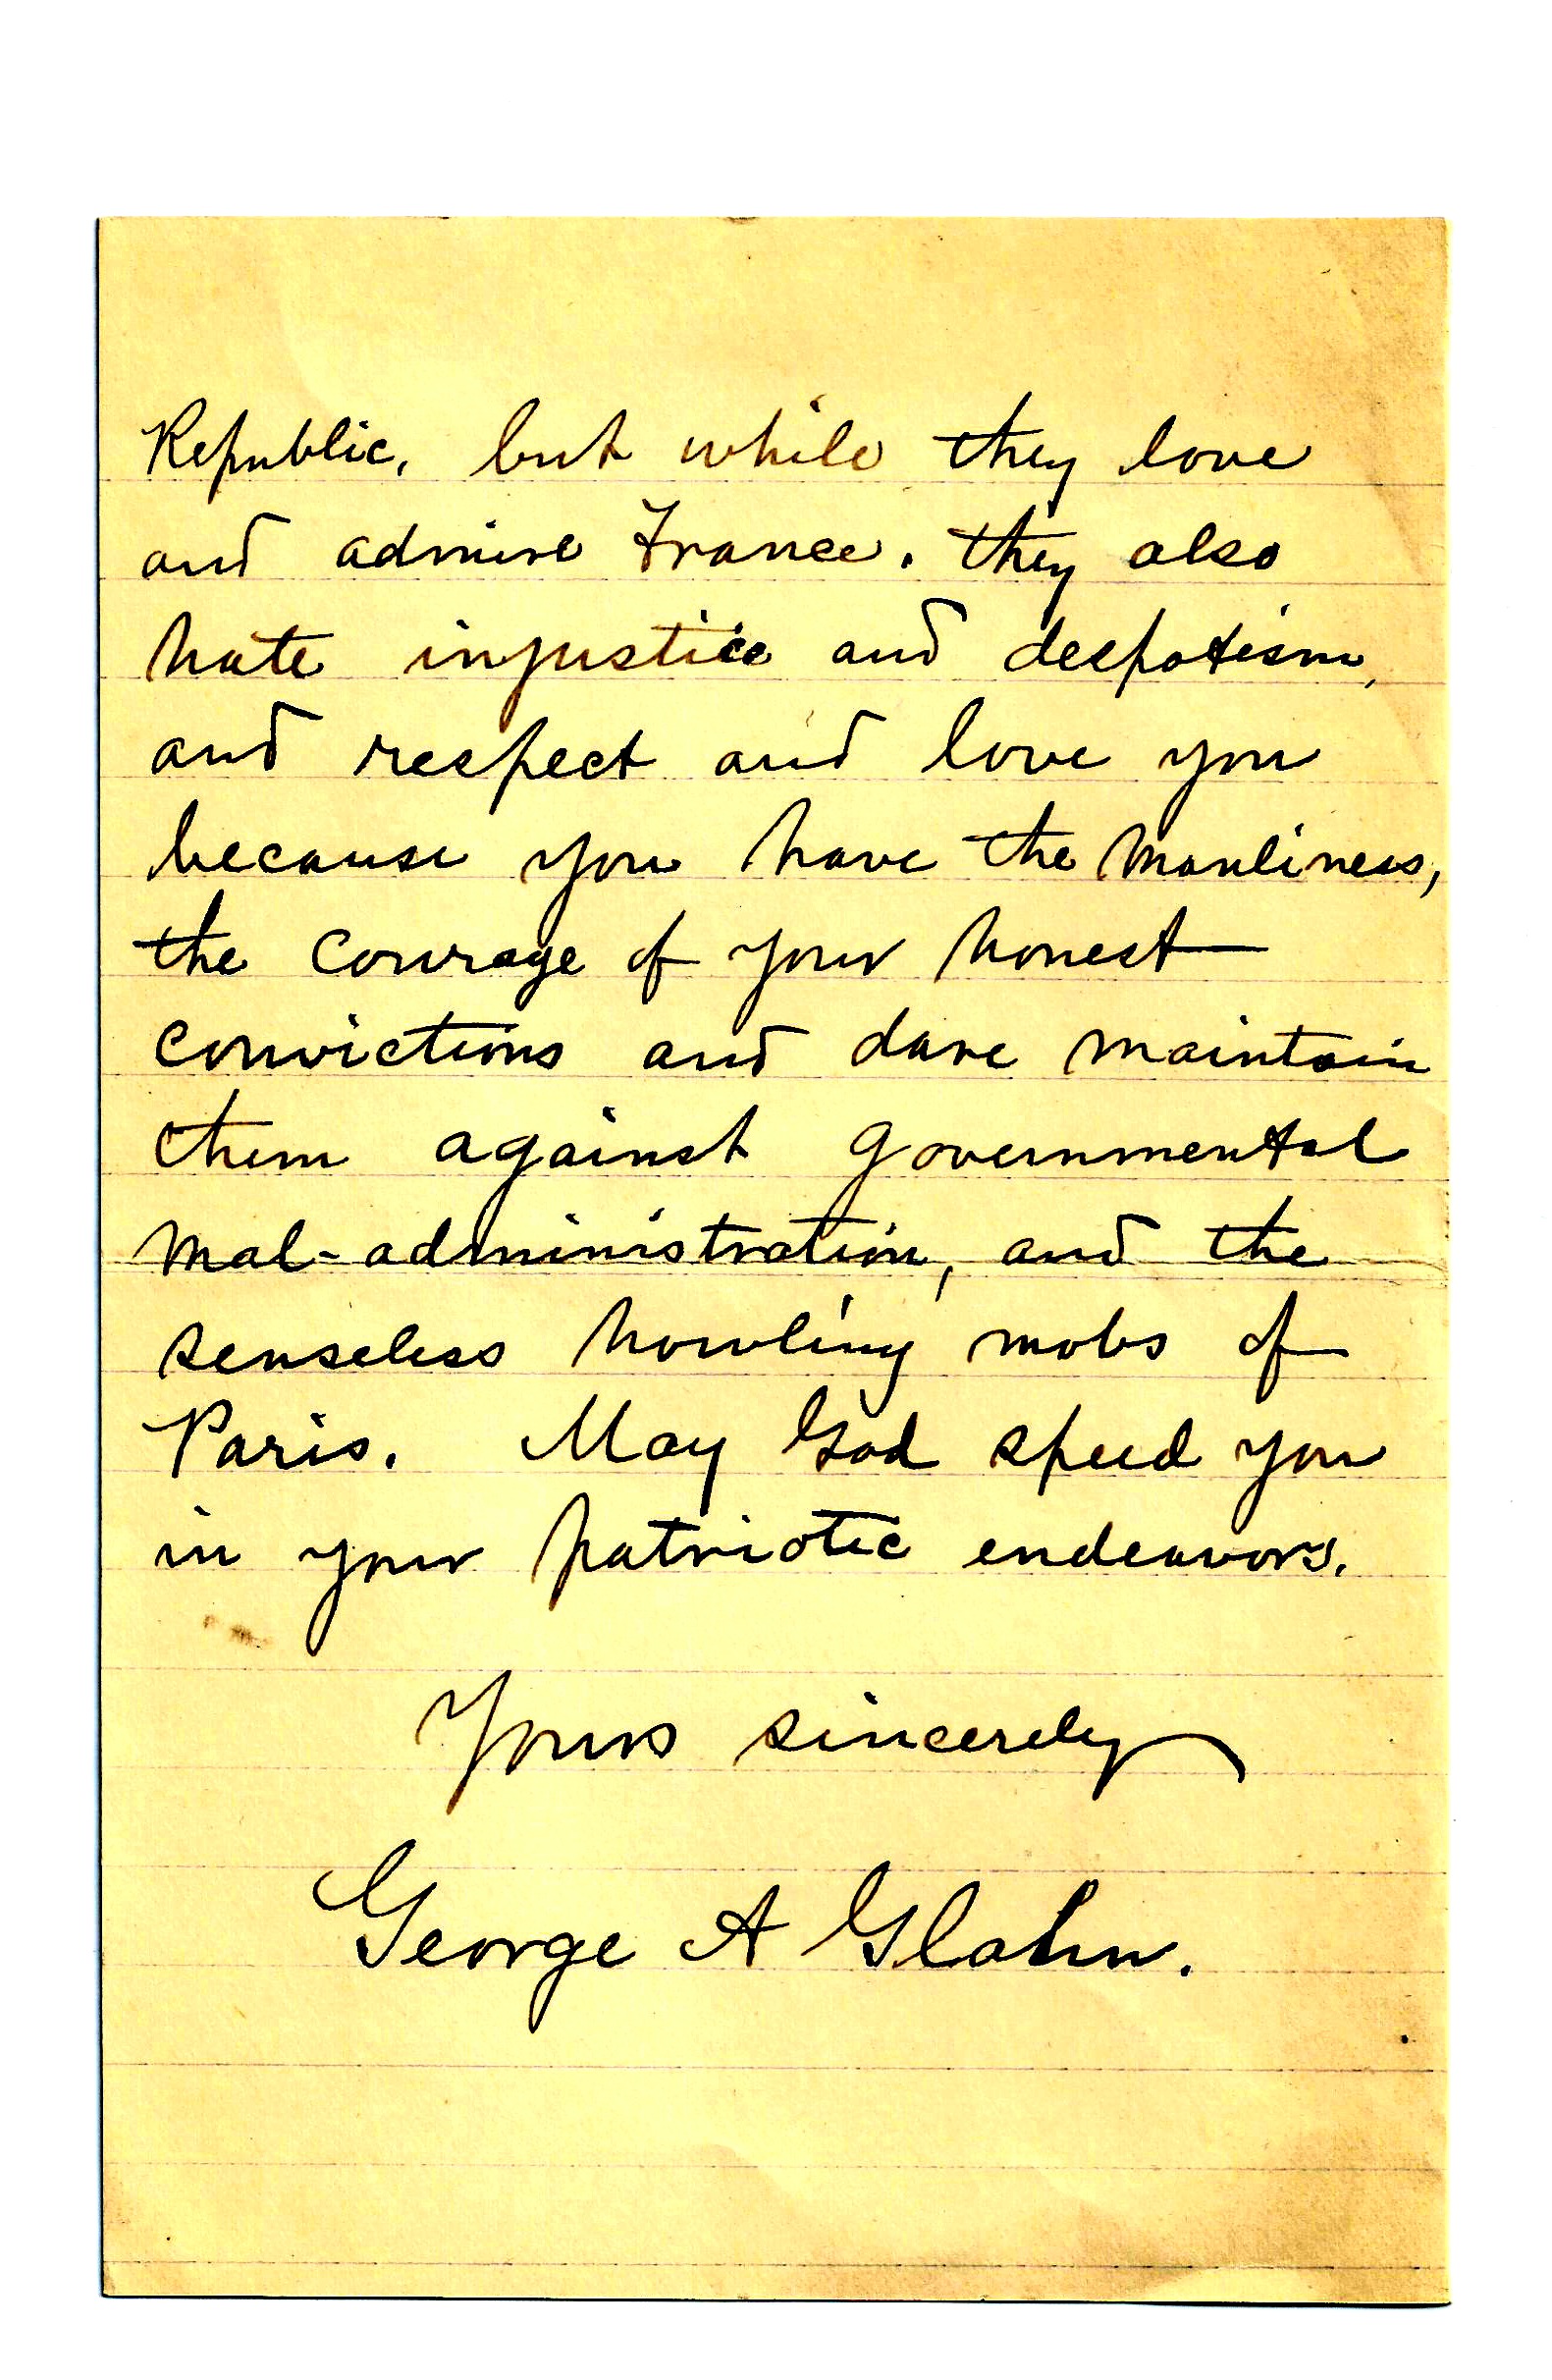 Republic, but while they love
and admire France, they also
hate injustice and despotism,
and respect and love you
because you have the manliness,
the courage of your honest
convictions and dare maintain
them against governmental
mal-administration, and the
senseless howling mobs of
Paris. May God speed you
in your patriotic endeavors.
Yours sincerely
George A Glahn.